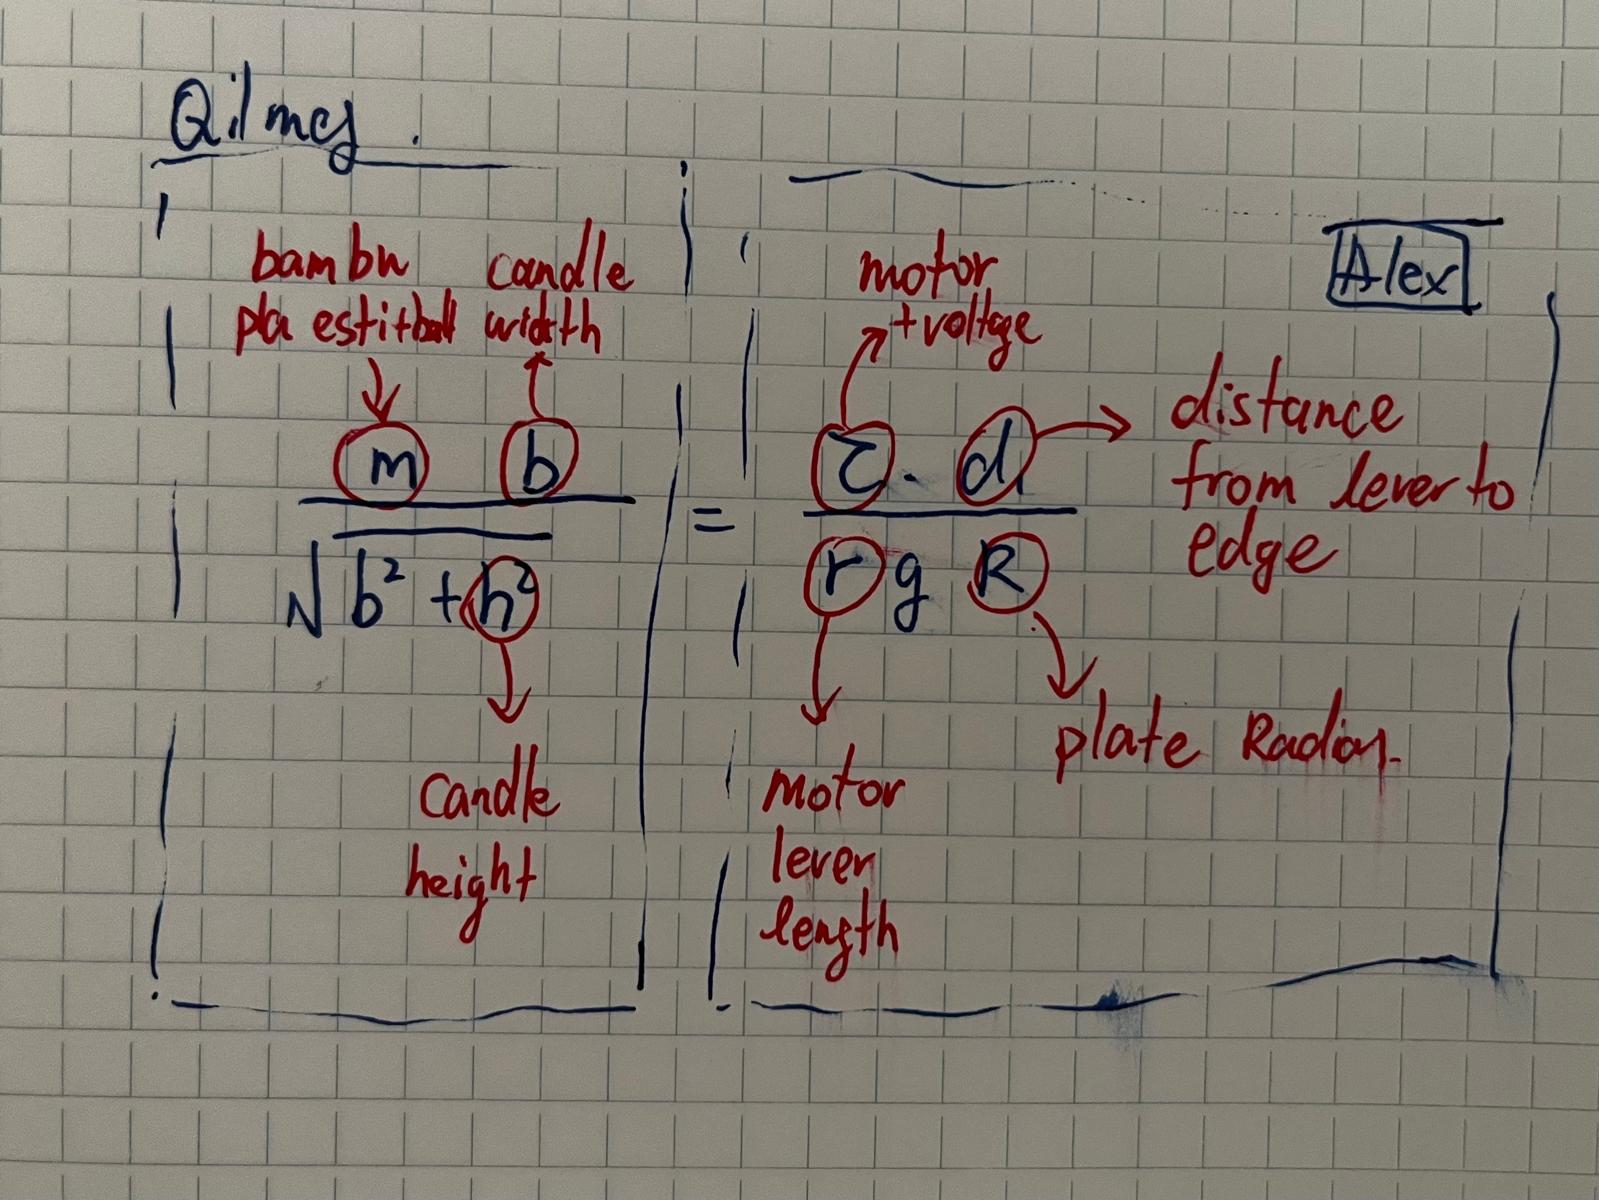 Qilmcy.
Alex
bambu candle
pla width
motor
+ voltage
m b
√b² + h²
=
τ . d
r g R
distance
from lever to
edge
candle
height
motor
lever
length
plate